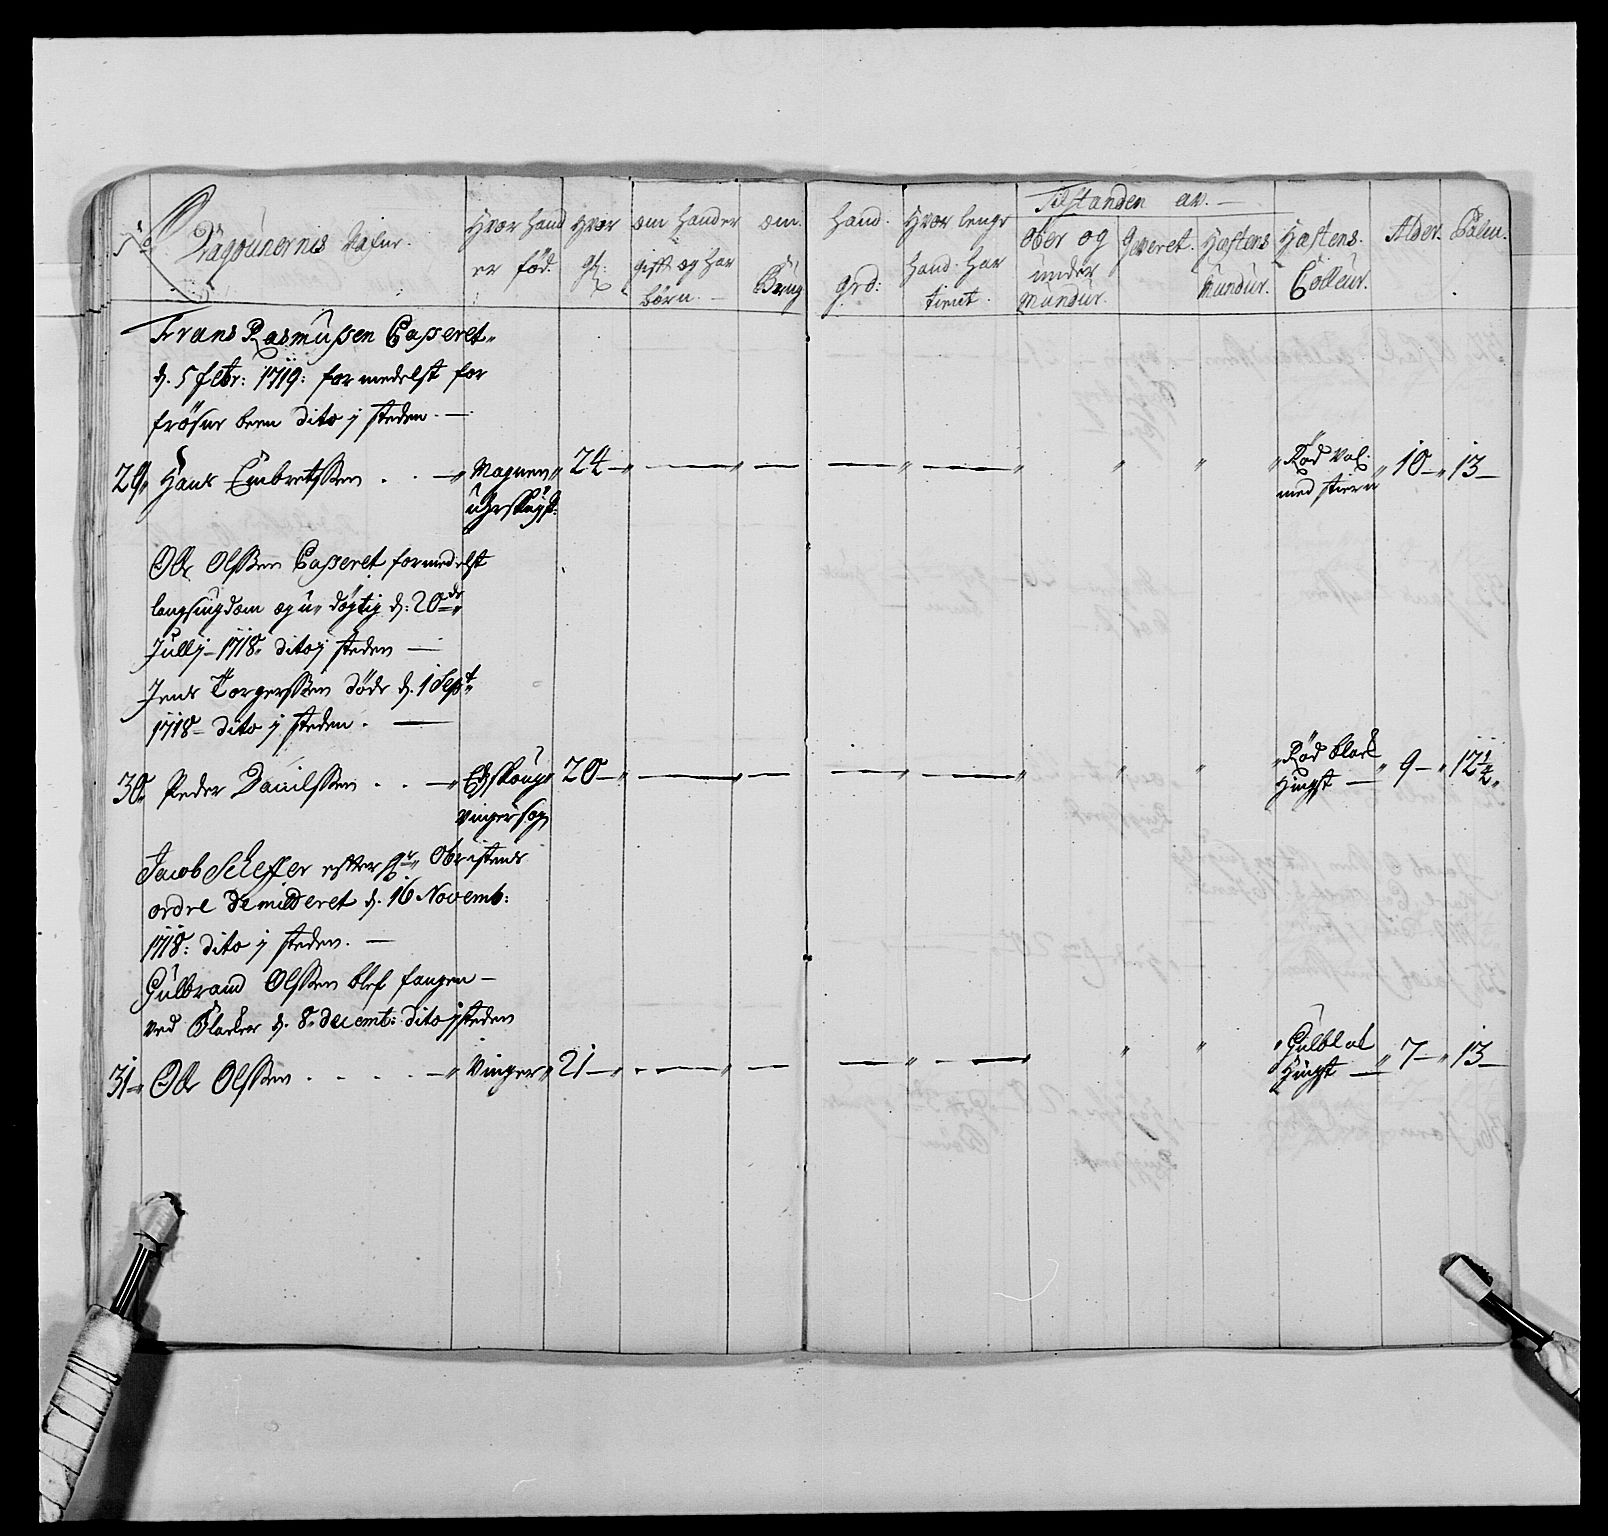 No Dragounernis Nafne.
Hvor hand er fød.
Hvor gl:
om hand er gift og har börn.
om. Brug
hand. grd:
Hvor lenge hand har tient.
Tilstanden av.
Ober og under Mundur.
Geveret.
Hæstens Mundur.
Hæstens Colleur.
Alder.
Palm.
Frans Rasmussen Casseret
d. 5 febr: 1719: formedelst for
frösne been dito j steden. —
29 Hans Embretssen . . — Magnor 24 — Rød val. med stiern 10 — 13 —
Ole Olssen Casseret formedelst
langsingdom og u-dögtig d: 20de
Jullij 1718 dito j steden —
Jens Torgerssen döde d. 1 Sept
1718 dito j steden. —
30 Peder Danilssen . . — Edskoug Vinger sogn 20 — Rød blak Hingst — 9 — 12½
Jacob Scheffer efter Hr Obristens
ordre demitteret d. 16 Novemb:
1718: dito j steden. —
Gulbrand Olssen blef fangen —
ved Blacker d. 8 decemt: dito j steden
31 Ole Olssen . . . . . — Vinger 21 — Gulblak Hingst — 7 — 13 —